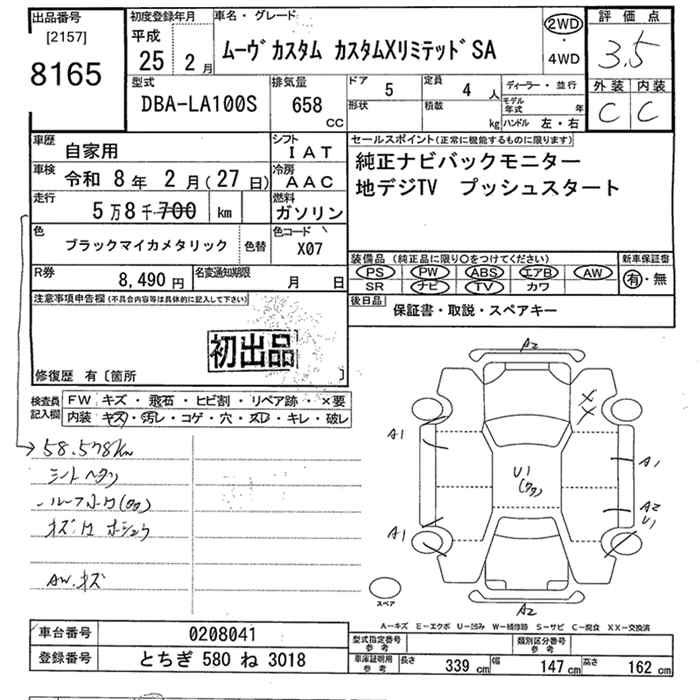 出品番号
[2157]
8165
初度登録年月
平成
25 2月
車名・グレード
ムーヴ カスタム カスタムXリミテッド SA
2WD
・
4WD
評価点
3.5
外装 内装
C C
型式
DBA-LA100S
排気量
658
CC
ドア 5
定員 4 人
形状
積載 kg
ディーラー・並行
モデル年式 年
ハンドル 左・右
車歴 自家用
シフト IAT
車検 令和 8年 2月(27日)
冷房 AAC
走行 5万8千700 km
燃料 ガソリン
色 ブラックマイカメタリック 色替
色コード X07
R券 8,490 円
名変通知期限 月 日
セールスポイント(正常に機能するものに限ります)
純正ナビバックモニター
地デジTV プッシュスタート
装備品 (純正品に限り○をつけてください) 新車保証書
PS PW ABS エアB AW 有・無
SR ナビ TV カワ
後日品
保証書・取説・スペアキー
注意事項申告欄(不具合内容等は具体的に記入して下さい)
初出品
修復歴 有〔箇所 〕
検査員記入欄
FW キズ・飛石・ヒビ割・リペア跡・×要
内装 キズ・汚レ・コゲ・穴・ズレ・キレ・破レ
58.578km
シートヘタリ
AW.キズ
A2
A1
A1
A1
A2
U1
U1
A2
××
スペア
A−キズ E−エクボ U−凹み W−補修跡 S−サビ C−腐食 XX−交換済
車台番号 0208041
登録番号 とちぎ 580 ね 3018
型式指定番号 参考
類別区分番号 参考
車庫証明用 参考
長さ 339 cm 幅 147 cm 高さ 162 cm